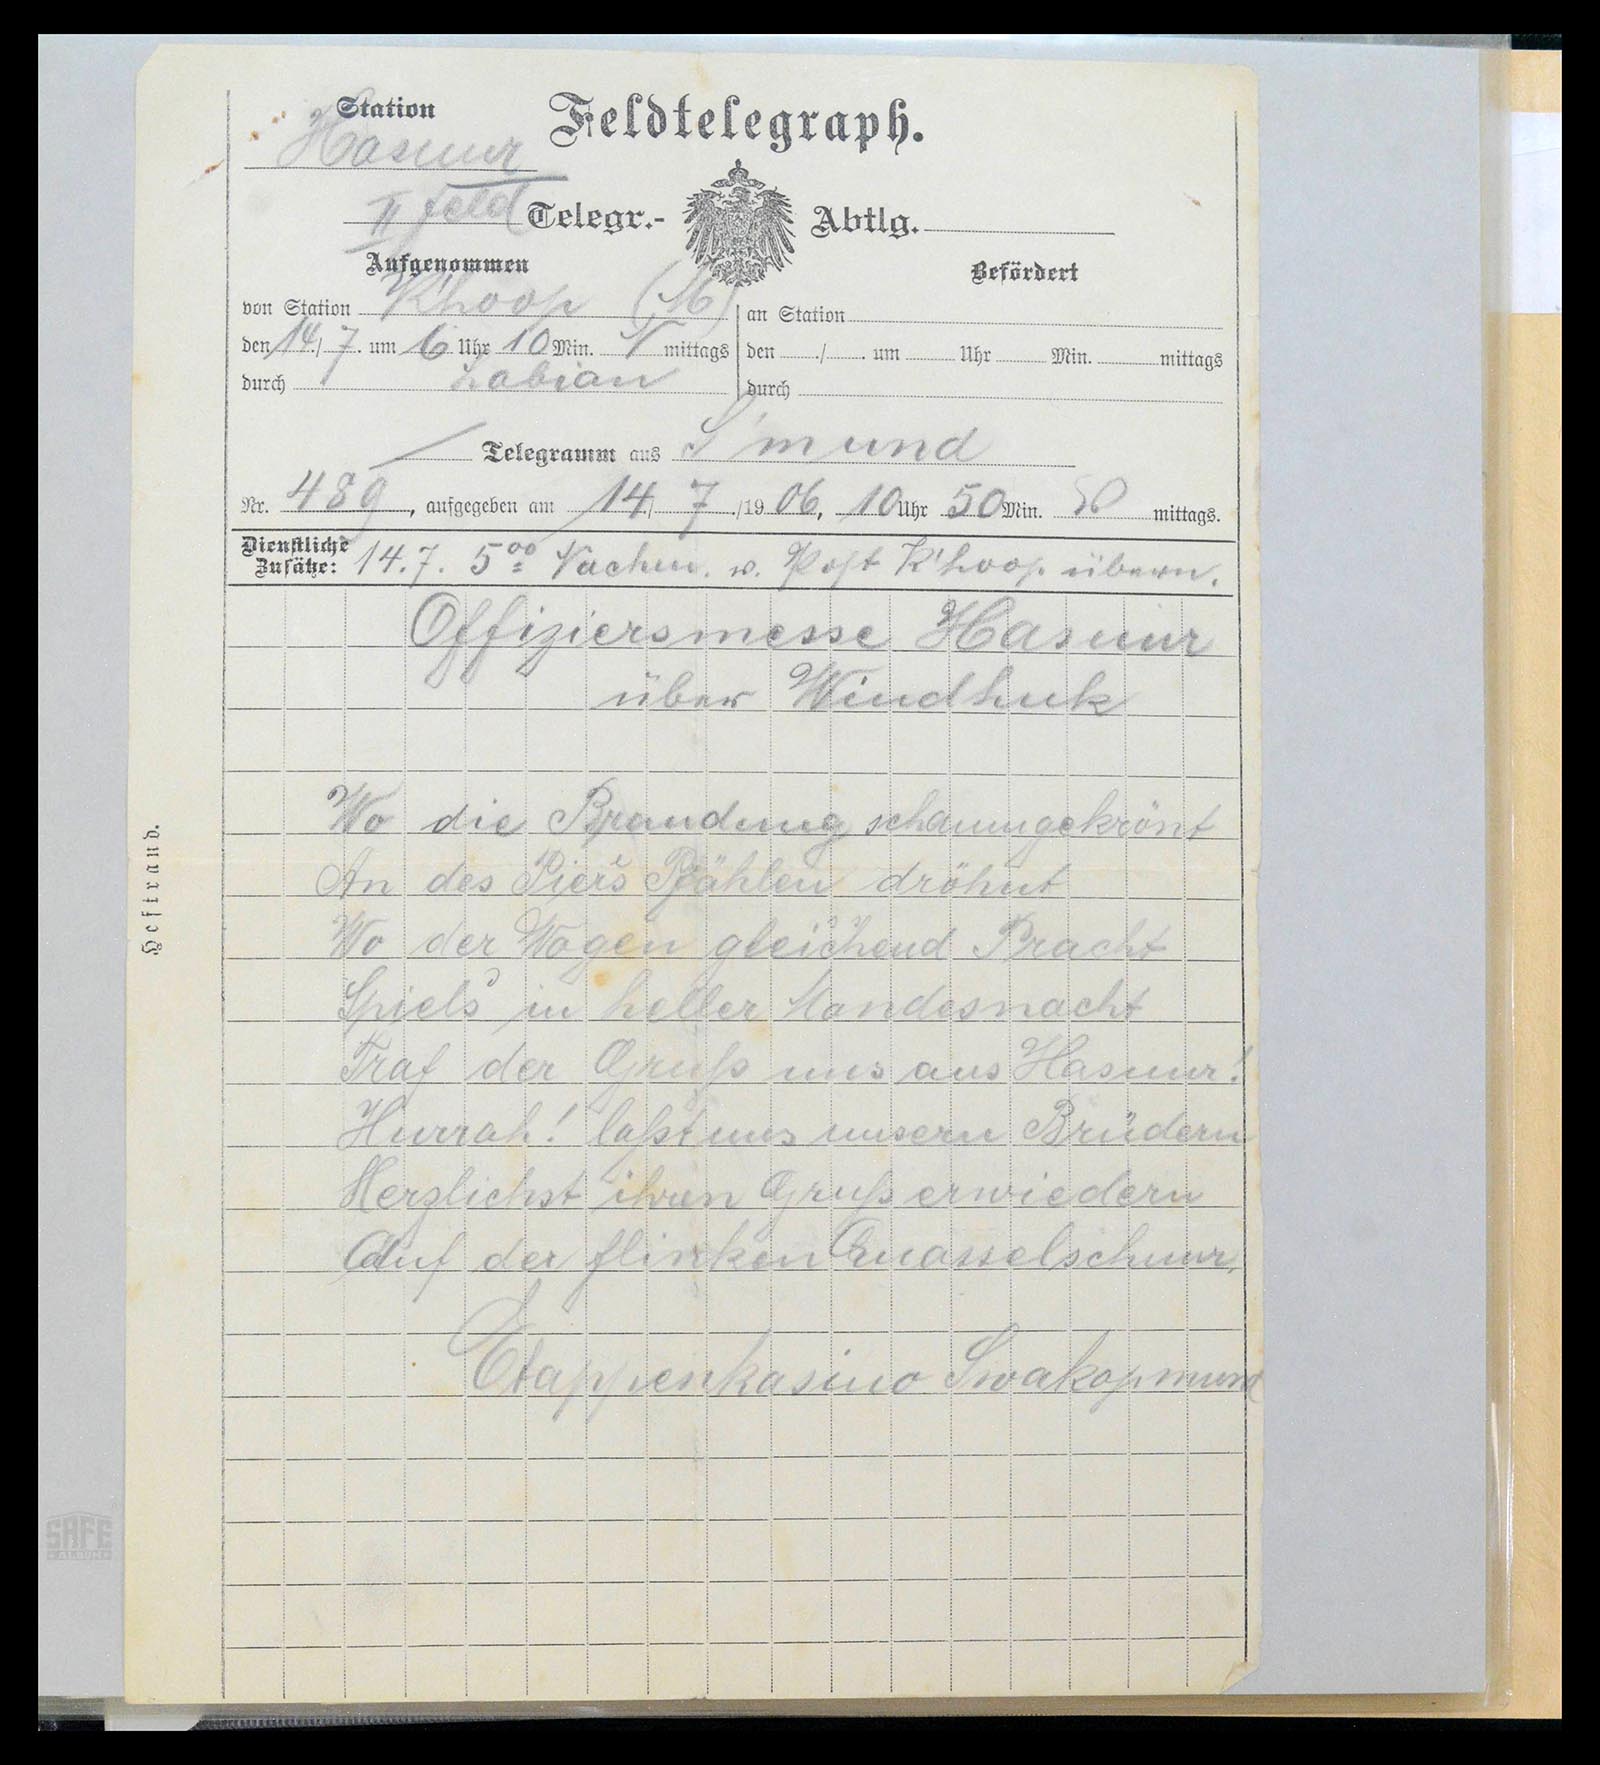 Station
Feldtelegraph.
Hasuur
II Feld Telegr.- Abtlg.
Aufgenommen
Befördert
von Station K'hoop (M)
an Station
den 14./7. um 6 Uhr 10 Min. N mittags
den ./. um Uhr Min. mittags
durch Labian
durch
Telegramm aus S'mund
Nr. 489, aufgegeben am 14/7/1906, 10 Uhr 50 Min. mittags.
Dienstliche
Zusätze: 14.7. 5 00 Nachm. v. Post K'hoop übern.
Offiziersmesse Hasuur
über Windhuk
Wo die Brandung schaumgekrönt
An des Piers Pfählen dröhnt
Wo der Wogen gleichend Pracht
Spiels in heller Mondesnacht
Traf der Gruß uns aus Hasuur!
Hurrah! laßt uns unsern Brüdern
Herzlichst ihren Gruß erwiedern
Auf der flinken Quasselschnur.
Etappenkasino Swakopmund
Heftrand.
SAFE
ALBUM